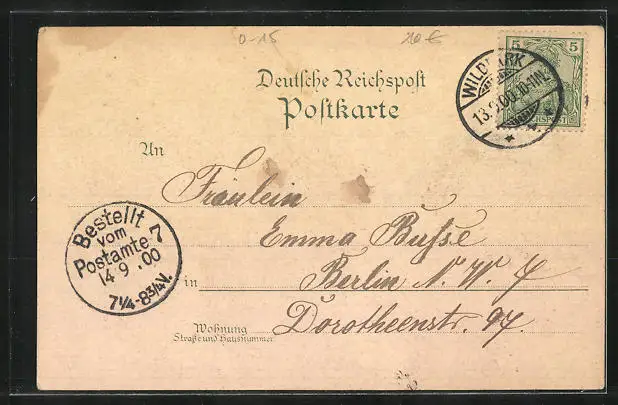 0-15
10 €
5 5
WILDPARK
13.9.00. 10-11N.
REICHSPOST
Deutsche Reichspost
Postkarte
An
Fräulein
Emma Busse
Bestellt
vom
Postamte 7
14.9.00
7¼-8¾V.
in Berlin N. W. 7
Dorotheenstr. 97.
Wohnung
Straße und Hausnummer